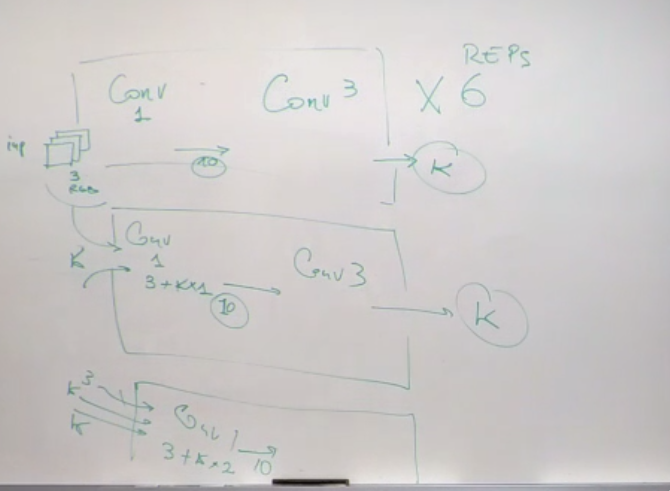 REPS
Conv
1
Conv 3
X 6
inp
3
RGB
10
K
Conv
1
K
3+K×1
10
Conv 3
K
3
K
K
Conv 1
3+K×2
10